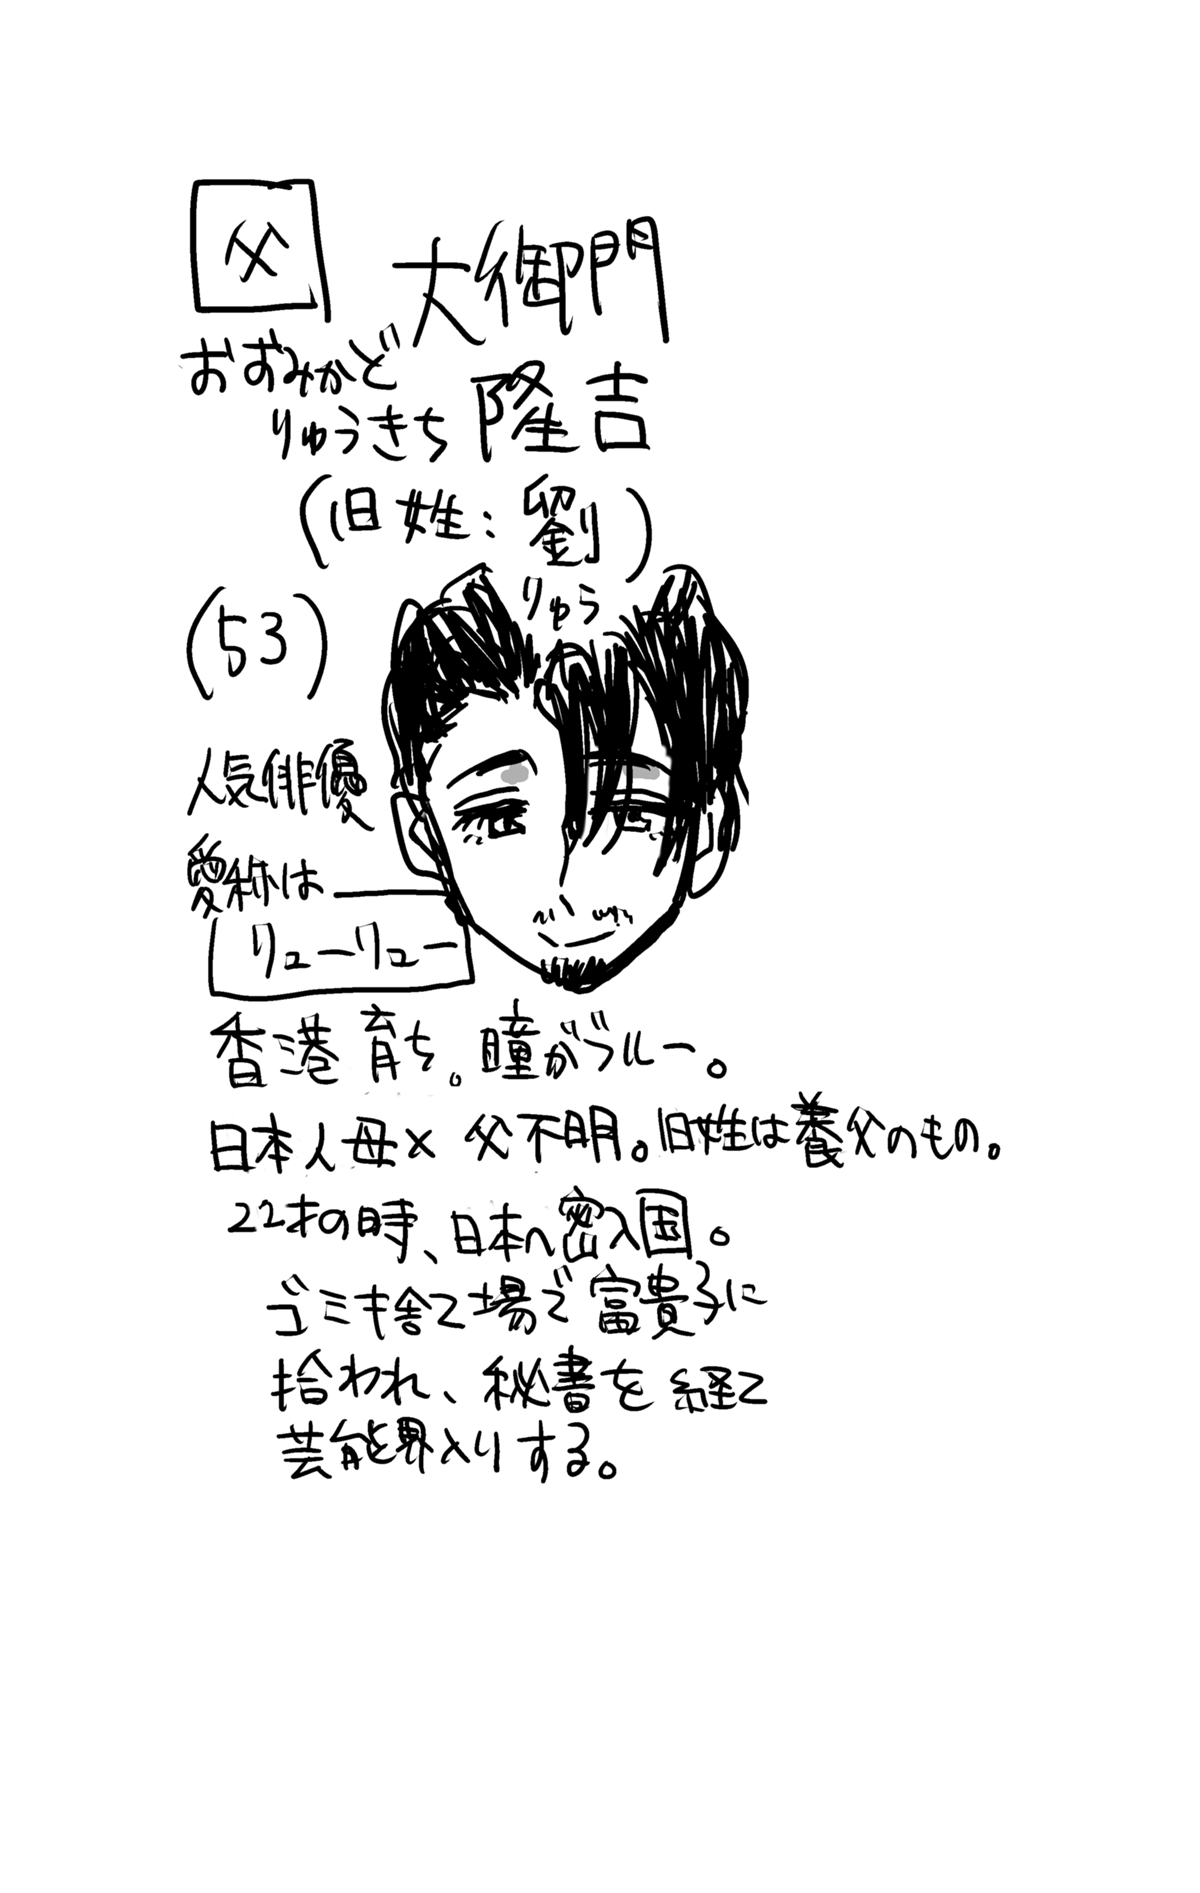 父
大御門
おずみかど
隆吉
りゅうきち
(旧姓:劉)
りゅう
(53)
人気俳優
愛称は
リューリュー
香港育ち。瞳がブルー。
日本人母×父不明。旧姓は養父のもの。
22才の時、日本へ密入国。
ゴミ捨て場で富貴子に
拾われ、秘書を経て
芸能界入りする。